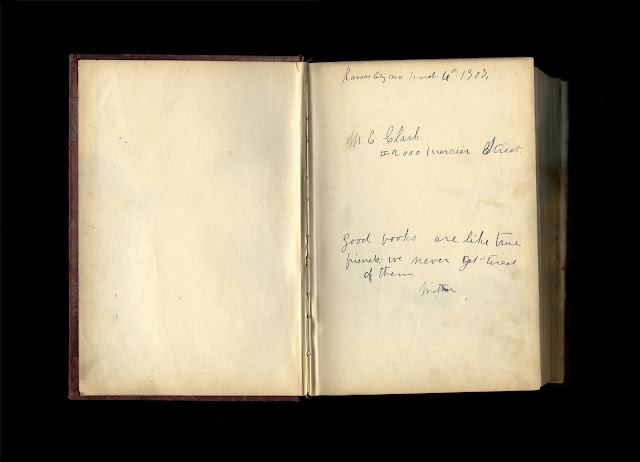 Kansas City Mo. March 6th 1907,
M E Clark
#2000 Mercier Street.
Good books are like true
friends; we never get tired
of them
Mother.